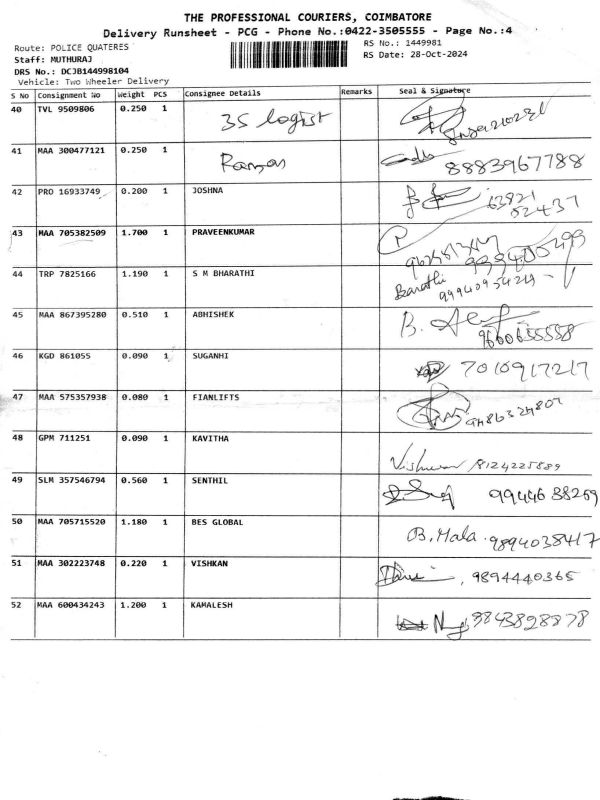 THE PROFESSIONAL COURIERS, COIMBATORE
Delivery Runsheet - PCG - Phone No.:0422-3505555 - Page No.:4
Route: POLICE QUATERES
RS No.: 1449981
Staff: MUTHURAJ
RS Date: 28-Oct-2024
DRS No.: DCJB144998104
Vehicle: Two Wheeler Delivery
S No Consignment No Weight PCS Consignee Details Remarks Seal & Signature
40 TVL 9509806 0.250 1 3S logist
41 MAA 300477121 0.250 1 8883967788
42 PRO 16933749 0.200 1 JOSHNA 63821
52437
43 MAA 705382509 1.700 1 PRAVEENKUMAR P
44 TRP 7825166 1.190 1 S M BHARATHI Barathi
99940954219
45 MAA 867395280 0.510 1 ABHISHEK B.
9600655558
46 KGD 861055 0.090 1 SUGANHI 7010917217
47 MAA 575357938 0.080 1 FIANLIFTS 9486324807
48 GPM 711251 0.090 1 KAVITHA 8124225889
49 SLM 357546794 0.560 1 SENTHIL 9944638259
50 MAA 705715520 1.180 1 BES GLOBAL B. Mala. 9894038417
51 MAA 302223748 0.220 1 VISHKAN , 9894440365
52 MAA 600434243 1.200 1 KAMALESH 9843828878